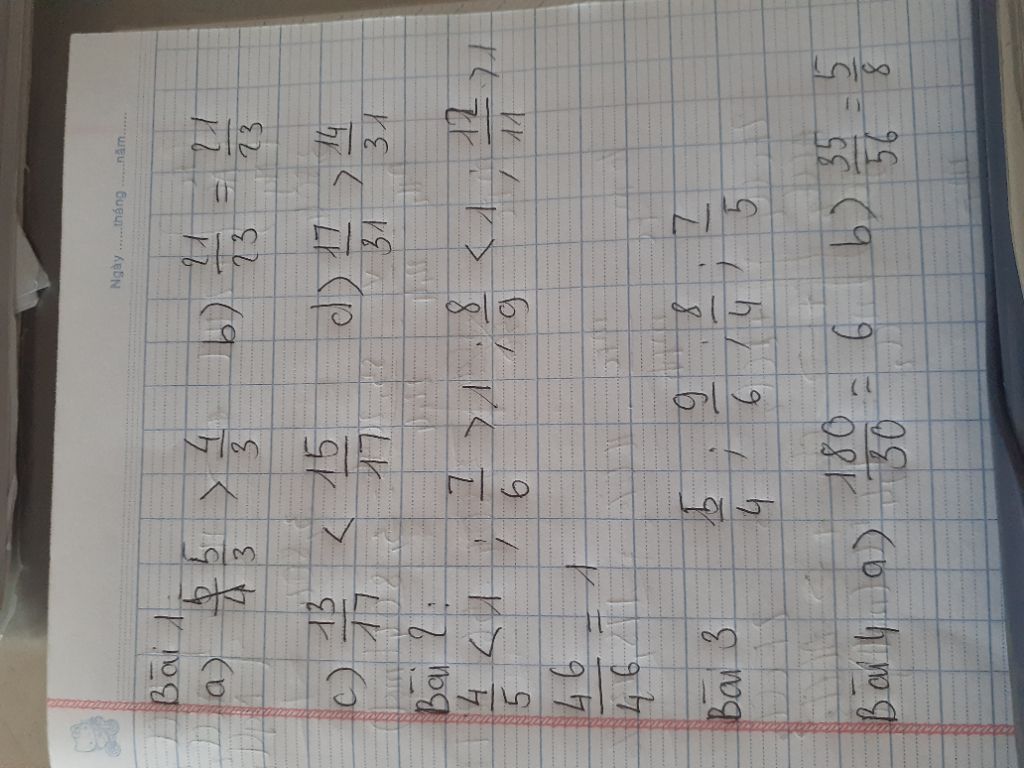 Ngày ......tháng ...........năm...........
Bài 1
a) 5/3 > 4/3 b) 21/23 = 21/23
c) 13/17 < 15/17 d) 17/31 > 14/31
Bài 2:
4/5 < 1 ; 7/6 > 1 ; 8/9 < 1 ; 12/11 > 1
46/46 = 1
Bài 3 5/4 ; 9/6 ; 8/4 ; 7/5
Bài 4 a) 180/30 = 6 b) 35/56 = 5/8